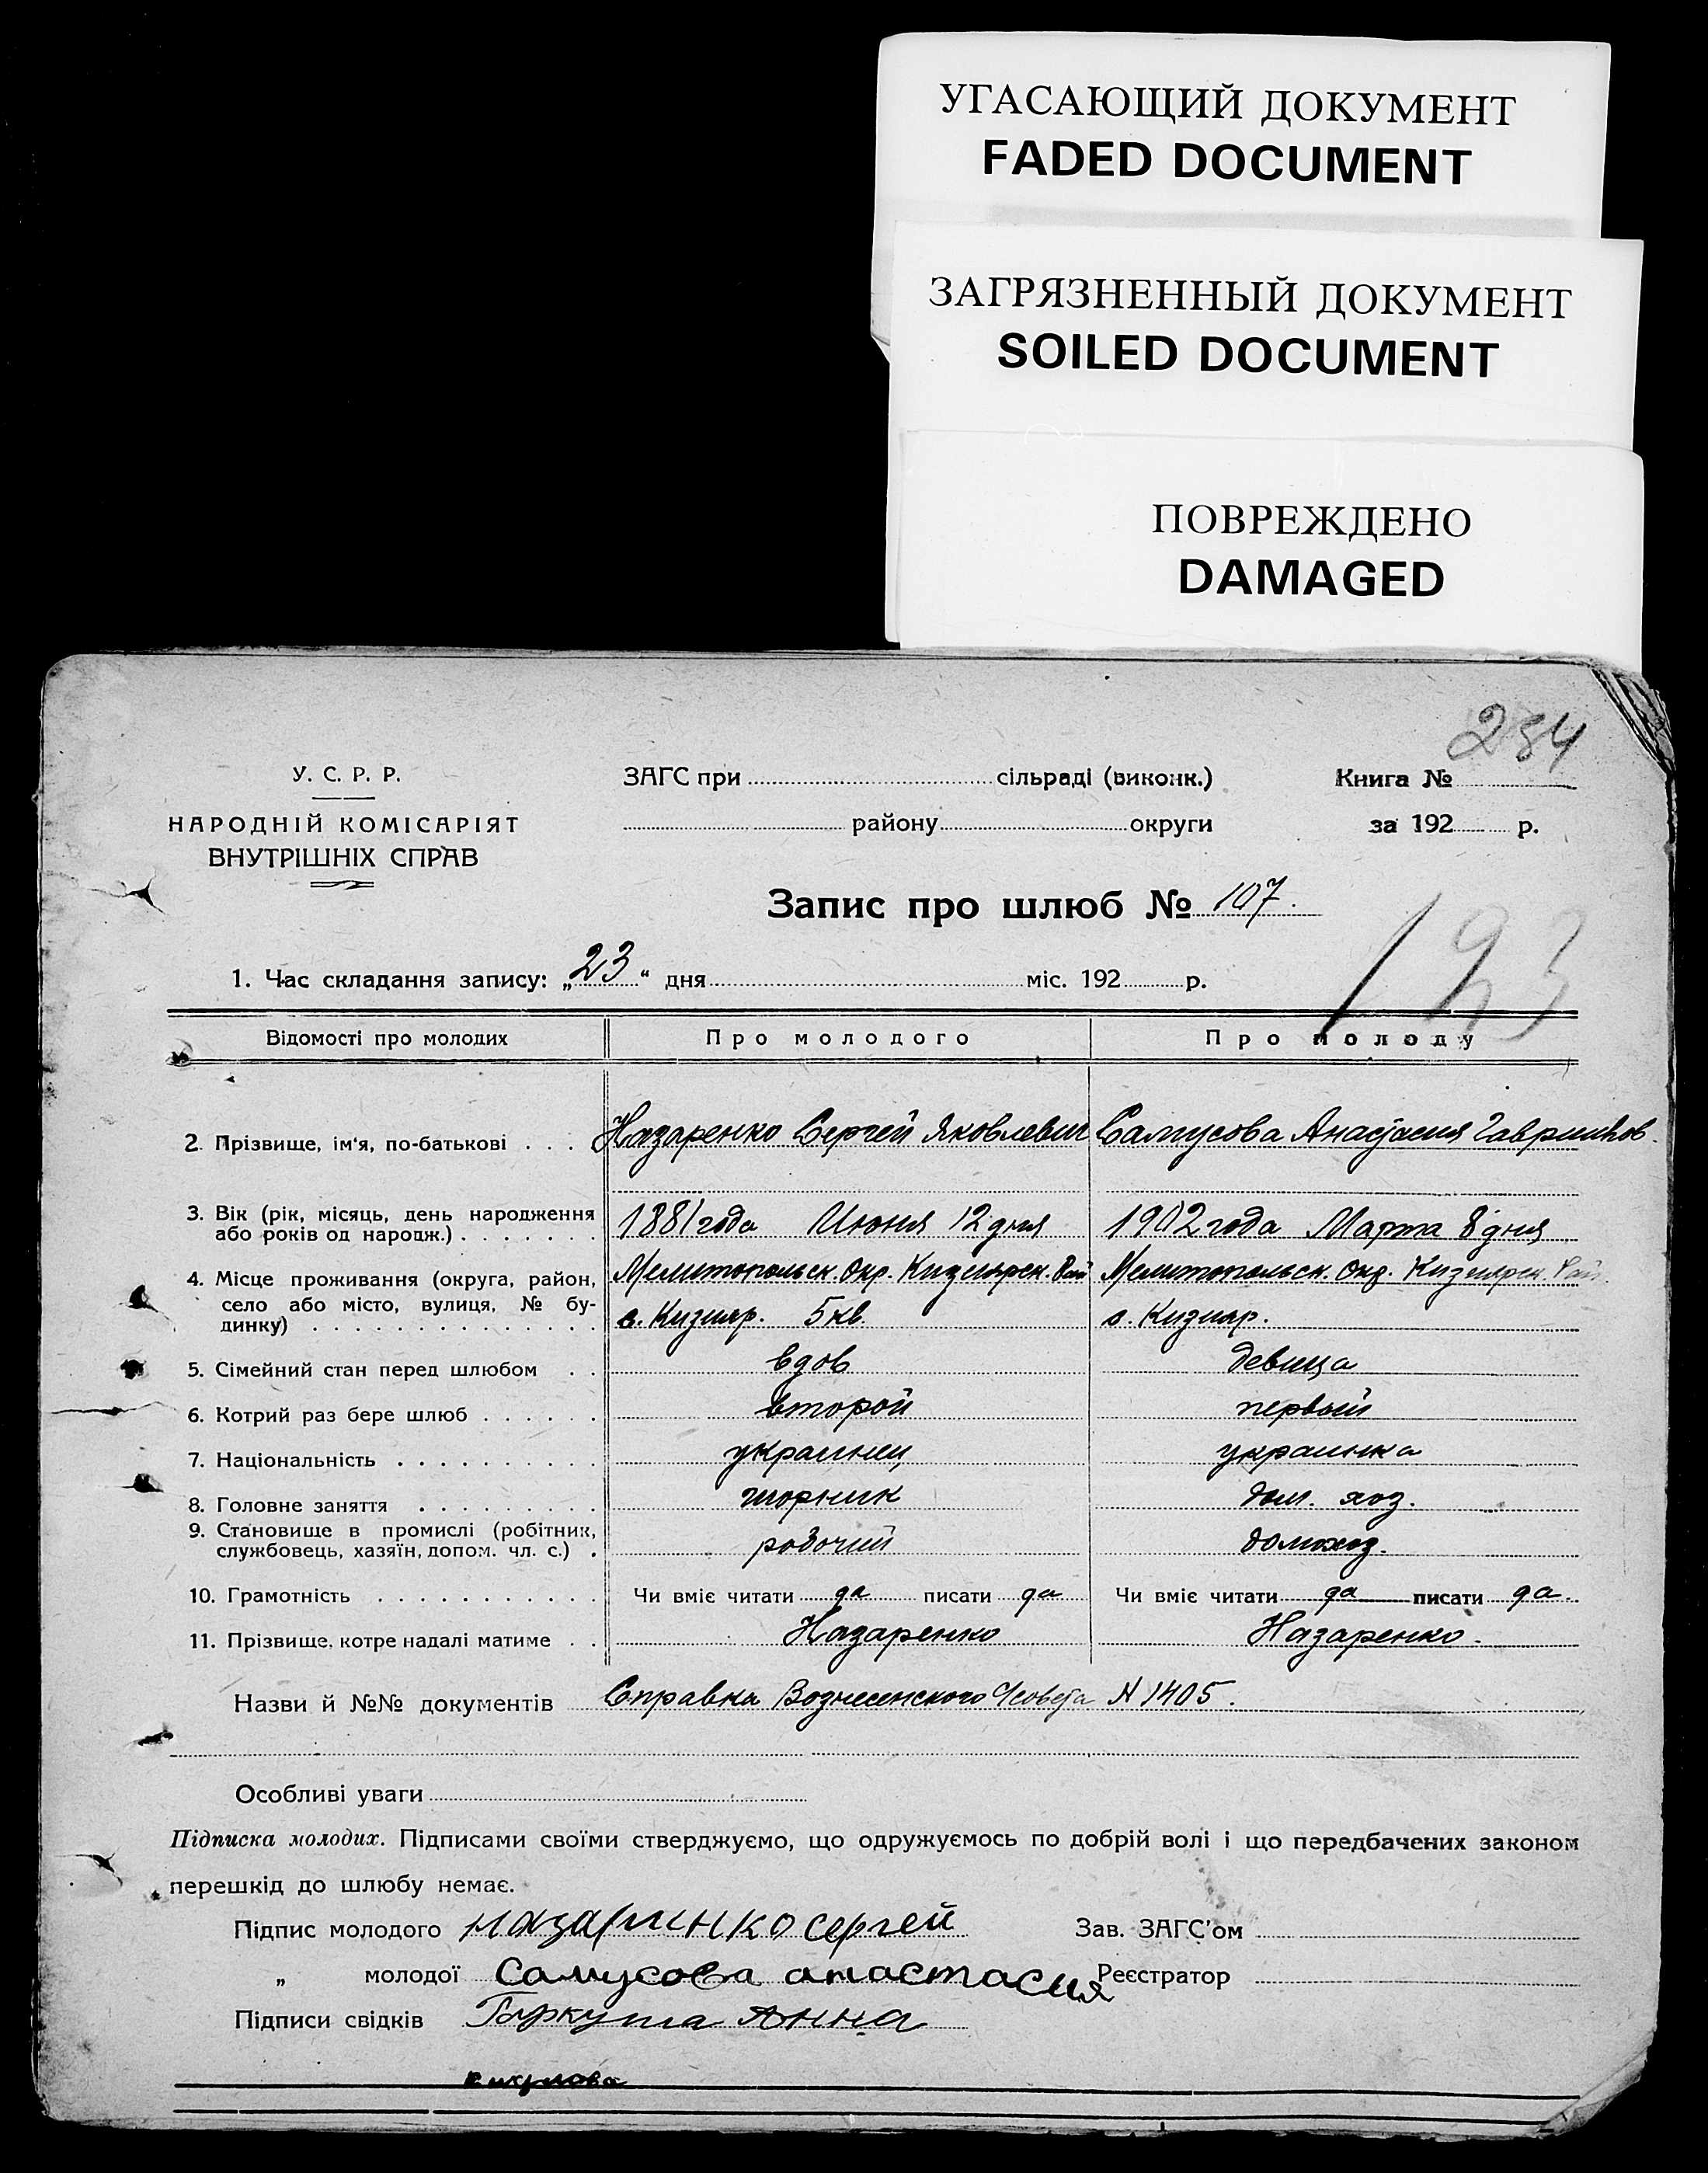 УГАСАЮЩИЙ ДОКУМЕНТ
FADED DOCUMENT
ЗАГРЯЗНЕННЫЙ ДОКУМЕНТ
SOILED DOCUMENT
ПОВРЕЖДЕНО
DAMAGED
284
У. С. Р. Р.
НАРОДНІЙ КОМІСАРІЯТ
ВНУТРІШНІХ СПРАВ
ЗАГС при сільраді (виконк.)
району округи
Книга №
за 192 р.
Запис про шлюб № 107.
193
1. Час складання запису: „23“ дня міс. 192 р.
Відомості про молодих Про молодого Про молоду
2. Прізвище, ім'я, по-батькові . . . Назаренко Сергей Яковлевич Самусова Анастасия Гаврилов.
3. Вік (рік, місяць, день народження
або років од народж.) . . . . . . . 1881 года Июня 12 дня 1902 года Марта 8 дня
4. Місце проживання (округа, район, Мелитопольск. Окр. Кизиярск. Рай Мелитопольск. Окр. Кизиярск. Рай.
село або місто, вулиця, № бу-
динку) . . . . . . . . . . . . . . с. Кизияр. 5 кв. с. Кизияр.
5. Сімейний стан перед шлюбом . . вдов девица
6. Котрий раз бере шлюб . . . . . . второй первый
7. Національність . . . . . . . . . . украинец украинка
8. Головне заняття . . . . . . . . . шорник дом. хоз.
9. Становище в промислі (робітник,
службовець, хазяїн, допом. чл. с.) . робочий домохоз.
10. Грамотність . . . . . . . . . . . Чи вміє читати да писати да Чи вміє читати да писати да.
11. Прізвище, котре надалі матиме . . Назаренко Назаренко.
Назви й №№ документів Справка Вознесенского N 1405.
Особливі уваги
Підписка молодих. Підписами своїми стверджуємо, що одружуємось по добрій волі і що передбачених законом
перешкід до шлюбу немає.
Підпис молодого Сергей Зав. ЗАГС'ом
„ молодої Самусова анастасия Реєстратор
Підписи свідків Гаркуша Анна